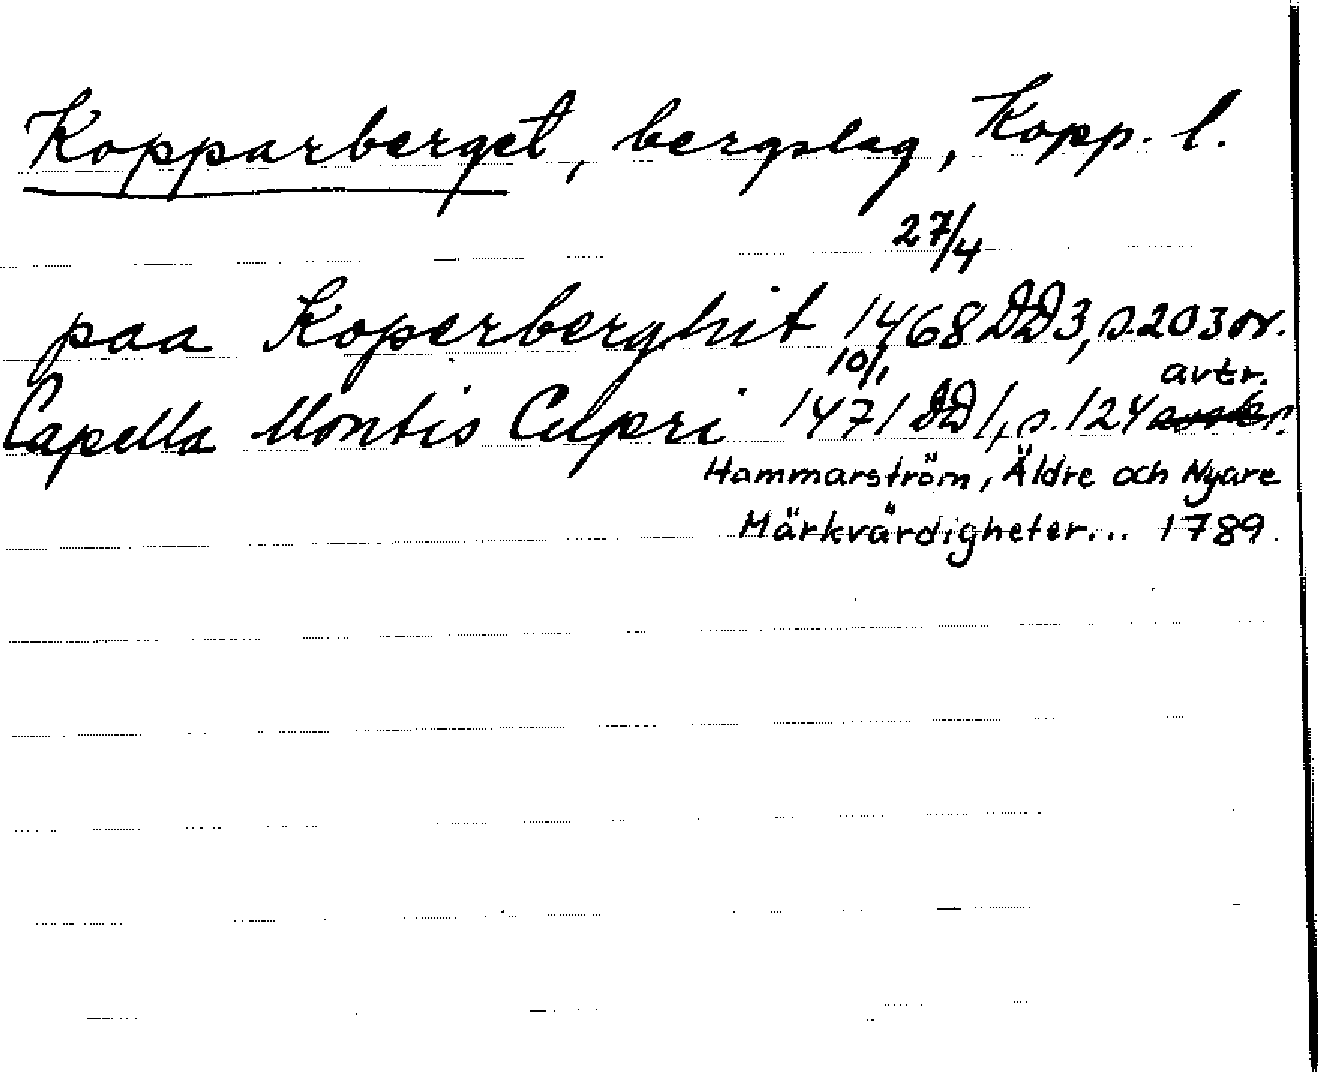 Kopparberget, bergslag, Kopp. l.
27/4
paa Koperberghit 1468 DD3, s. 203 or.
10/1 avtr.
Capella Montis Cupri 1471 DD1, s. 124
Hammarström, Äldre och Nyare
Märkvärdigheter... 1789.